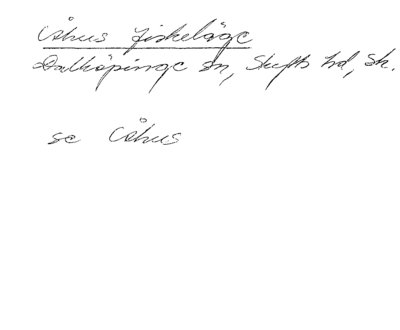 Åhus fiskeläge
Dalköpinge sn, Skytts hd, Sk.
se Åhus